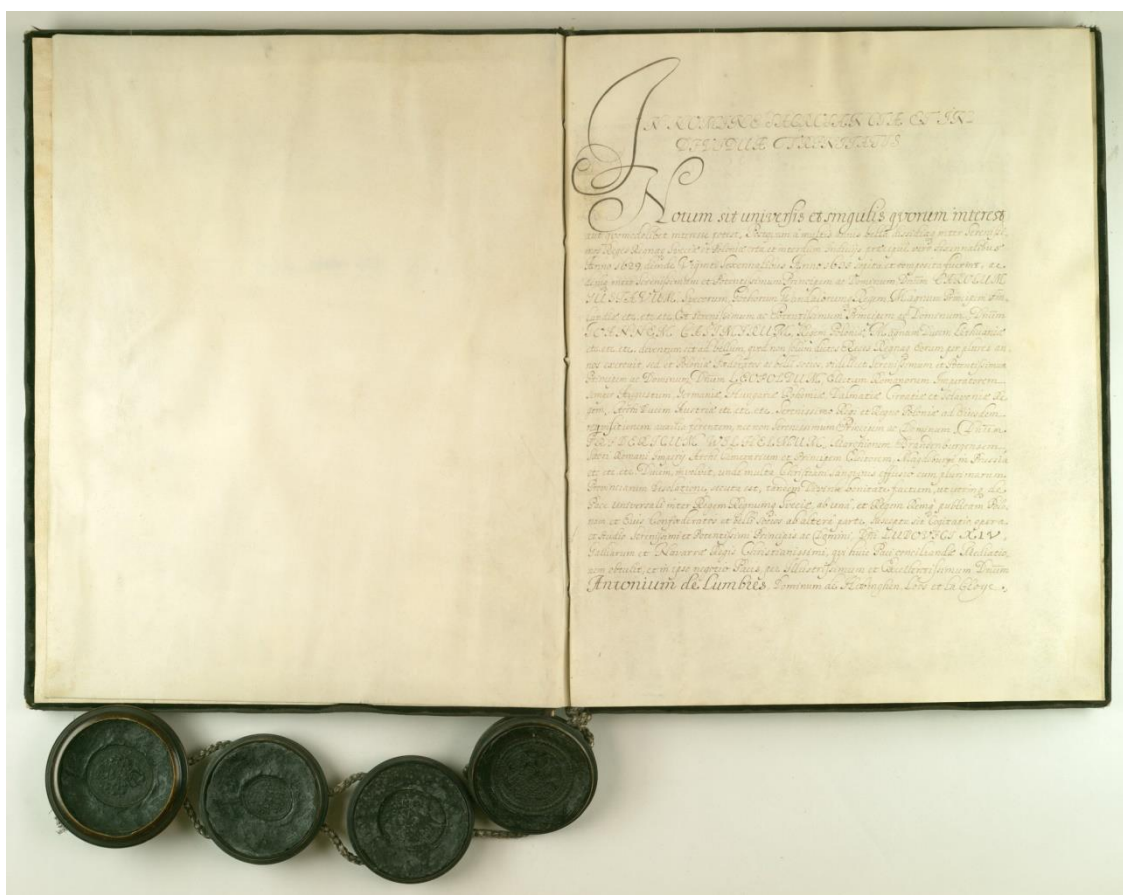 IN NOMINE SACROSANCTÆ ET IN-
DIVIDUÆ TRINITATIS
Notum sit universis et singulis qvorum interest
aut qvomodolibet interesse potest, Postqvam a multis annis bellis inter Serenissi-
mos Reges Regnaq Sveciæ et Poloniæ orta et interdum Inducijs, prius qvidem sexennalibus
Anno 1629 deinde Viginti Sexennalibus Anno 1635 sopita et composita fuerunt,
denuo inter Serenissimum et Potentissimum Principem ac Dominum Dnum CAROLUM
GUSTAVUM, Svecorum, Gothorum Vandalorumq Regem, Magnum Principem Fin-
landiæ, etc. etc. etc. Et Serenissimum ac Potentissimum Principem ac Dominum Dnum
IOANNEM CASIMIRUM, Regem Poloniæ, Magnum Ducem Lithuaniæ
etc. etc. etc. deventum est ad bellum, qvod non solum dictos Reges Regnaq eorum per plures an-
nos exercuit, sed et Poloniæ fœderatos ac belli socios, videlicet Serenissimum et Potentissimum
Principem ac Dominum, Dnum LEOPOLDUM, Electum Romanorum Imperatorem
semper Augustum, Germaniæ, Hungariæ, Bohemiæ, Dalmatiæ, Croatiæ et Sclavoniæ Re-
gem, Archi Ducem Austriæ etc. etc. etc. Serenissimo Regi et Regno Poloniæ ad Ejusdem
reqvisitionem auxilia ferentem, nec non Serenissimum Principem ac Dominum, Dnum
FRIDERICUM WILHELMUM, Marchionem Brandenburgensem,
Sacri Romani Imperij Archi Camerarium et Principem Electorem, Magdeburgi in Prussia
etc. etc. etc. Ducem, involvit, unde multa Christiani sangvinis effusio cum plurimarum
Provinciarum desolatione secuta est, tandem Divina bonitate factum, ut utrimq de
Pace Universali inter Regem Regnumq Sveciæ, ab una, et Regem Remq publicam Polo-
nam et Eius Confœderatos et belli Socios ab altera parte, suscepta sit Cogitatio opera
et studio Serenissimi et Potentissimi Principis ac Domini, Dni LUDOVICI XIV
Galliarum et Navarræ Regis Christianissimi, qui huic Paci conciliandæ Mediatio-
nem obtulit, et in ipso negotio Pacis, per Illustrissimum et Excellentissimum Dnum
Antonium de Lumbres, Dominum de Herbinghen, Loos et la Cloye.